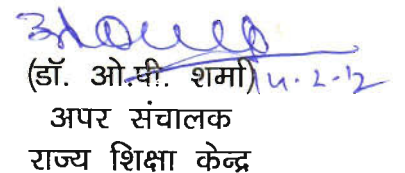 (डॉ. ओ.पी. शर्मा) 14.2.12
अपर संचालक
राज्य शिक्षा केन्द्र